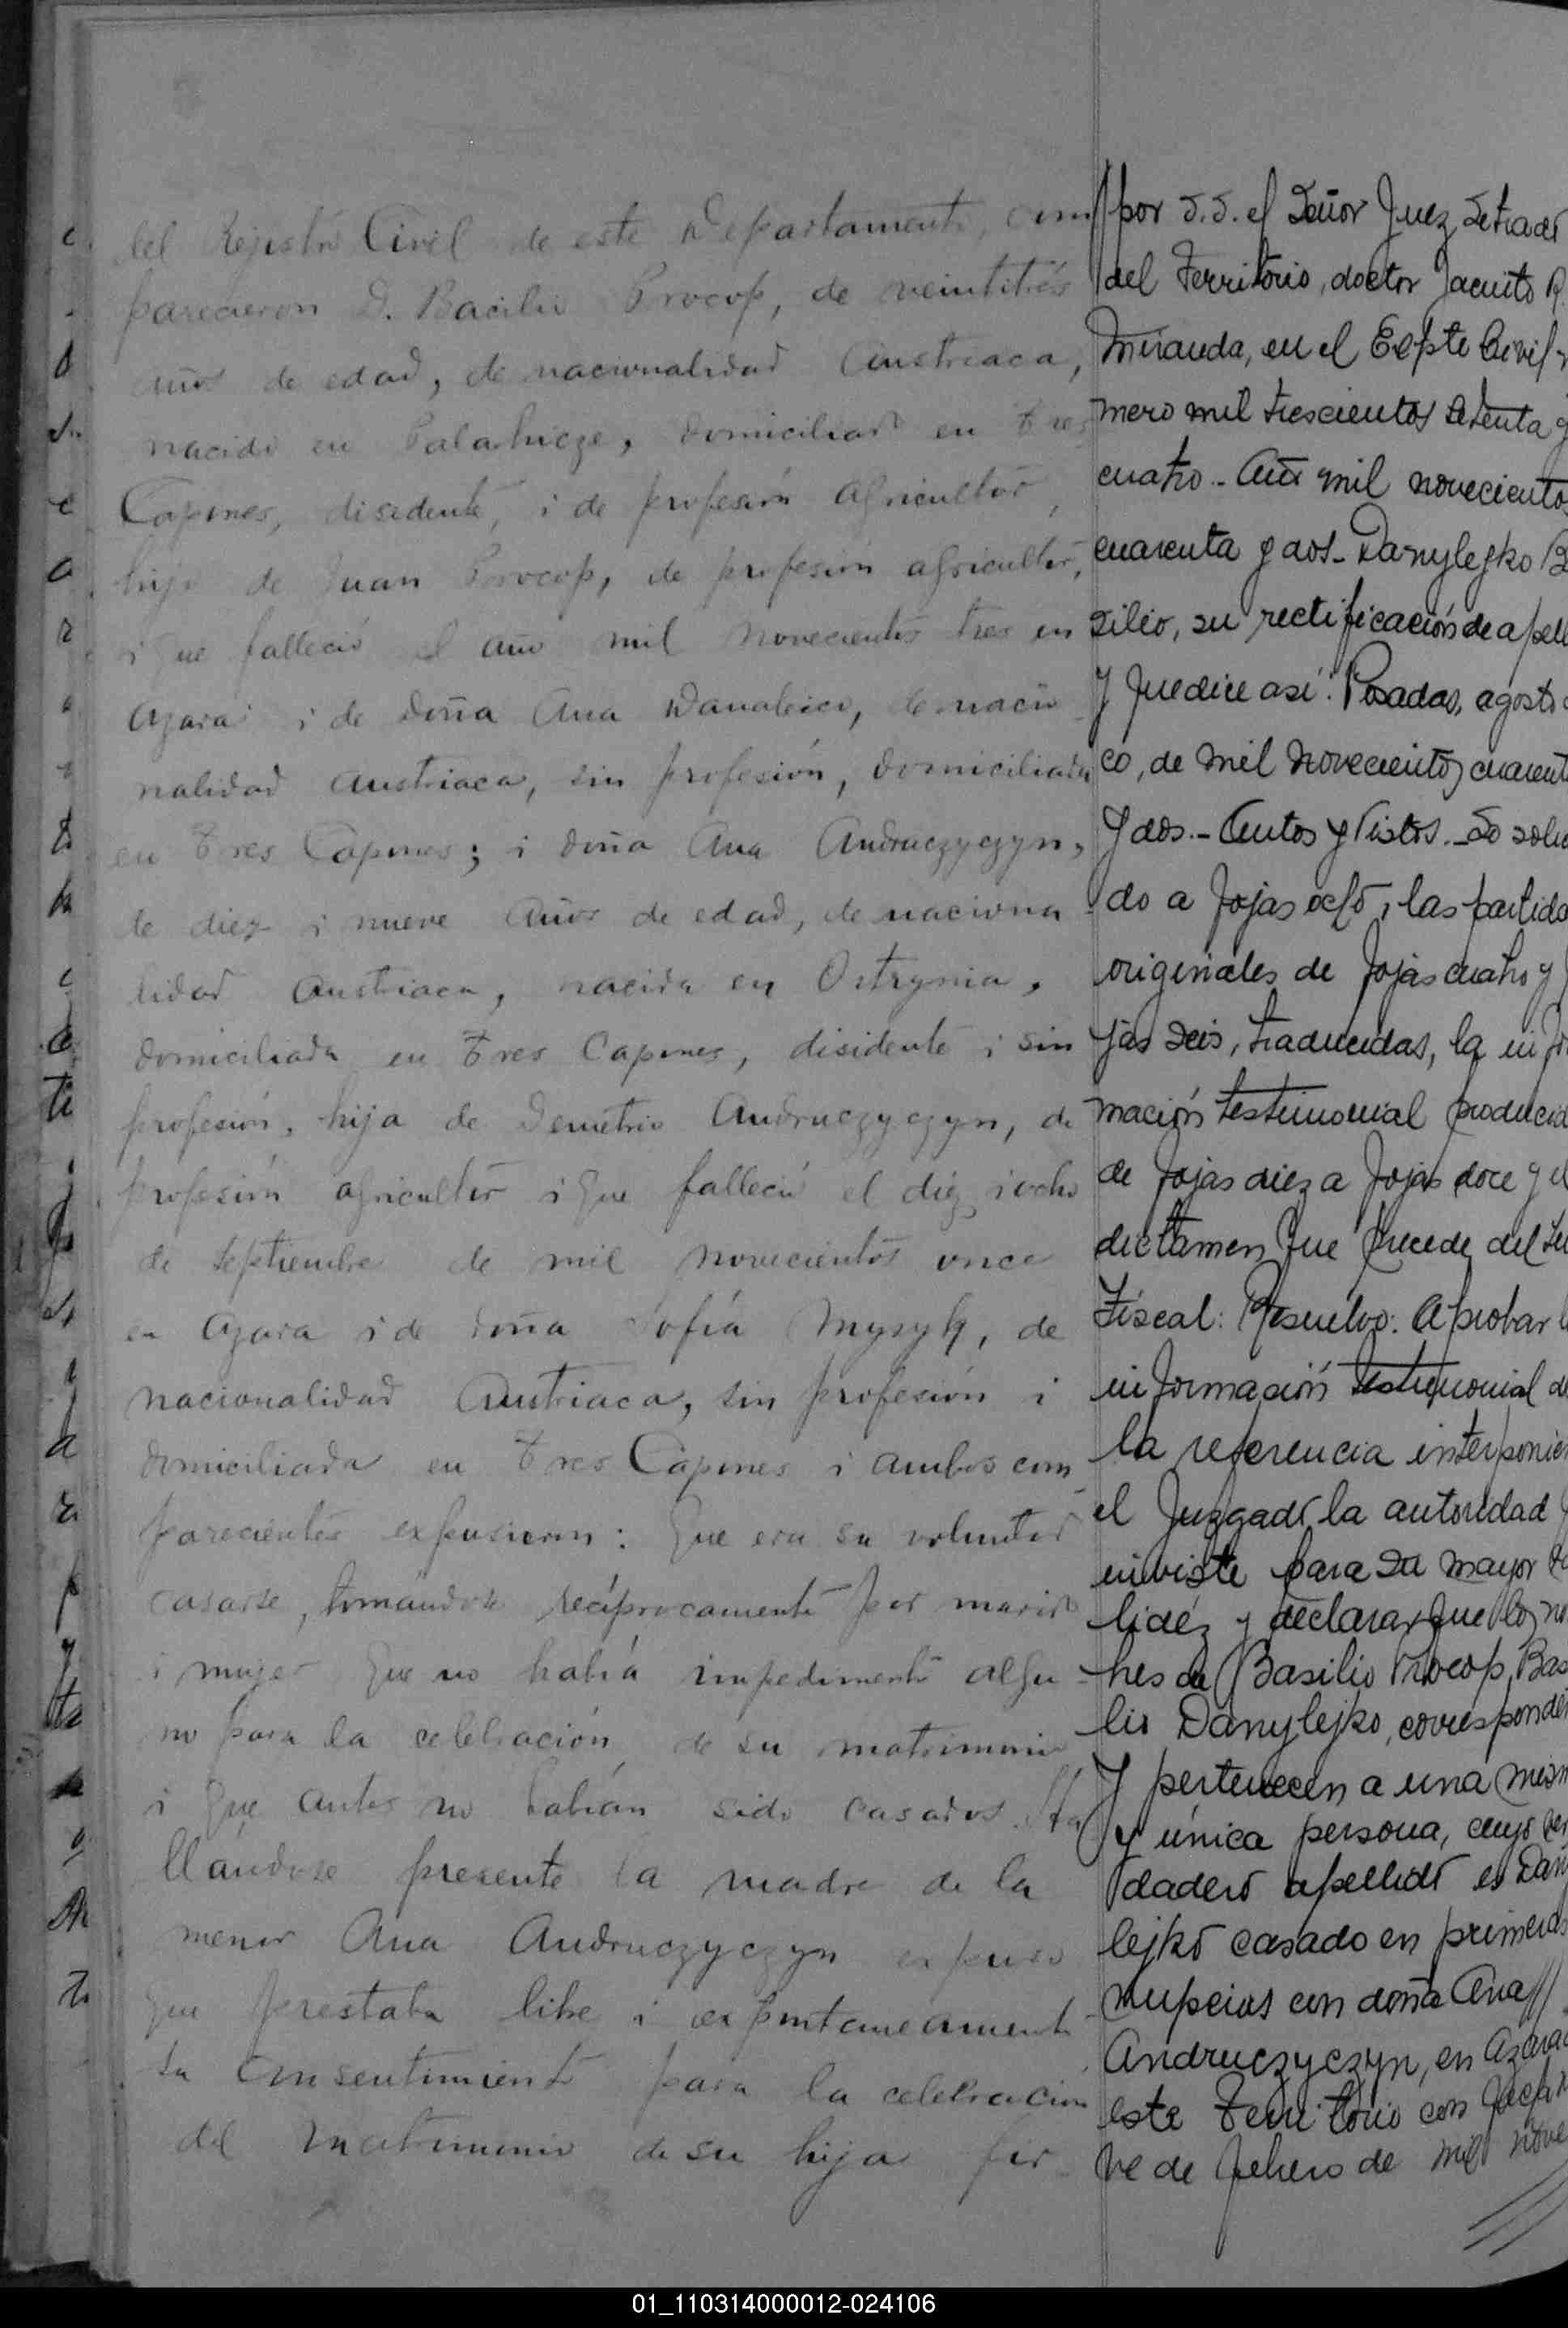 del Rejistro Civil de este Departamento, com
parecieron D. Bacilio Procop, de veintitrés
años de edad, de nacionalidad Austriaca,
nacido en Palahicze, domiciliado en Tres
Capones, disidente, i de profesión agricultor,
hijo de Juan Procop, de profesión agricultor,
i que falleció el año mil novecientos tres en
Azara i de doña Ana Danaleico, de nacio
nalidad Austriaca, sin profesión, domiciliada
en Tres Capones; i doña Ana Andruczyczyn,
de diez i nueve años de edad, de naciona
lidad Austriaca, nacida en Ostrynia,
domiciliada en Tres Capones, disidente i sin
profesión, hija de Demetrio Andruczyczyn, de
profesión agricultor i que falleció el diez i ocho
de Septiembre de mil novecientos once
en Azara i de doña Sofía Mysyk, de
nacionalidad Austriaca, sin profesión i
domiciliada en Tres Capones i ambos com
parecientes expusieron: Que era su voluntad
casarse, tomándose recíprocamente por marido
i mujer Que no había impedimento algu
no para la celebración de su matrimonio
i que antes no habían sido casados. Ha
llándose presente la madre de la
menor Ana Andruczyczyn expuso
que prestaba libre i expontaneamente
su consentimiento para la celebración
del matrimonio de su hija
//por S.S. el Señor Juez Letrado
del Territorio, doctor Jacinto R.
Miranda, en el Expte Civil
mero mil trescientos setenta y
cuatro.- Año mil novecientos
cuarenta y dos- Danylejko Ba
silio, su rectificación de apell
y que dice asi: Posadas, agosto
co, de mil novecientos cuarent
y dos.- Autos y Vistos.- Lo solici
do a fojas ocho, las partida
originales de fojas cuatro y
jas seis, traducidas, la infor
mación testimonial producid
de fojas diez a fojas doce y el
dictamen que precede del
Fiscal: Resuelvo: Aprobar l
información testimonial de
la referencia interponien
el Juzgado la autoridad
inviste para su mayor
lidéz y declarar que los no
bres de Basilio Procop, Bas
lio Danylejko, corresponden
y pertenecen a una mism
y única persona, cuyo ver
dadero apellido es Dany
lejko casado en primeras
nupcias con doña Ana//
Andruczyczyn, en Azara
este Territorio con fecha
ve de febrero de mil nove
01_110314000012-024106